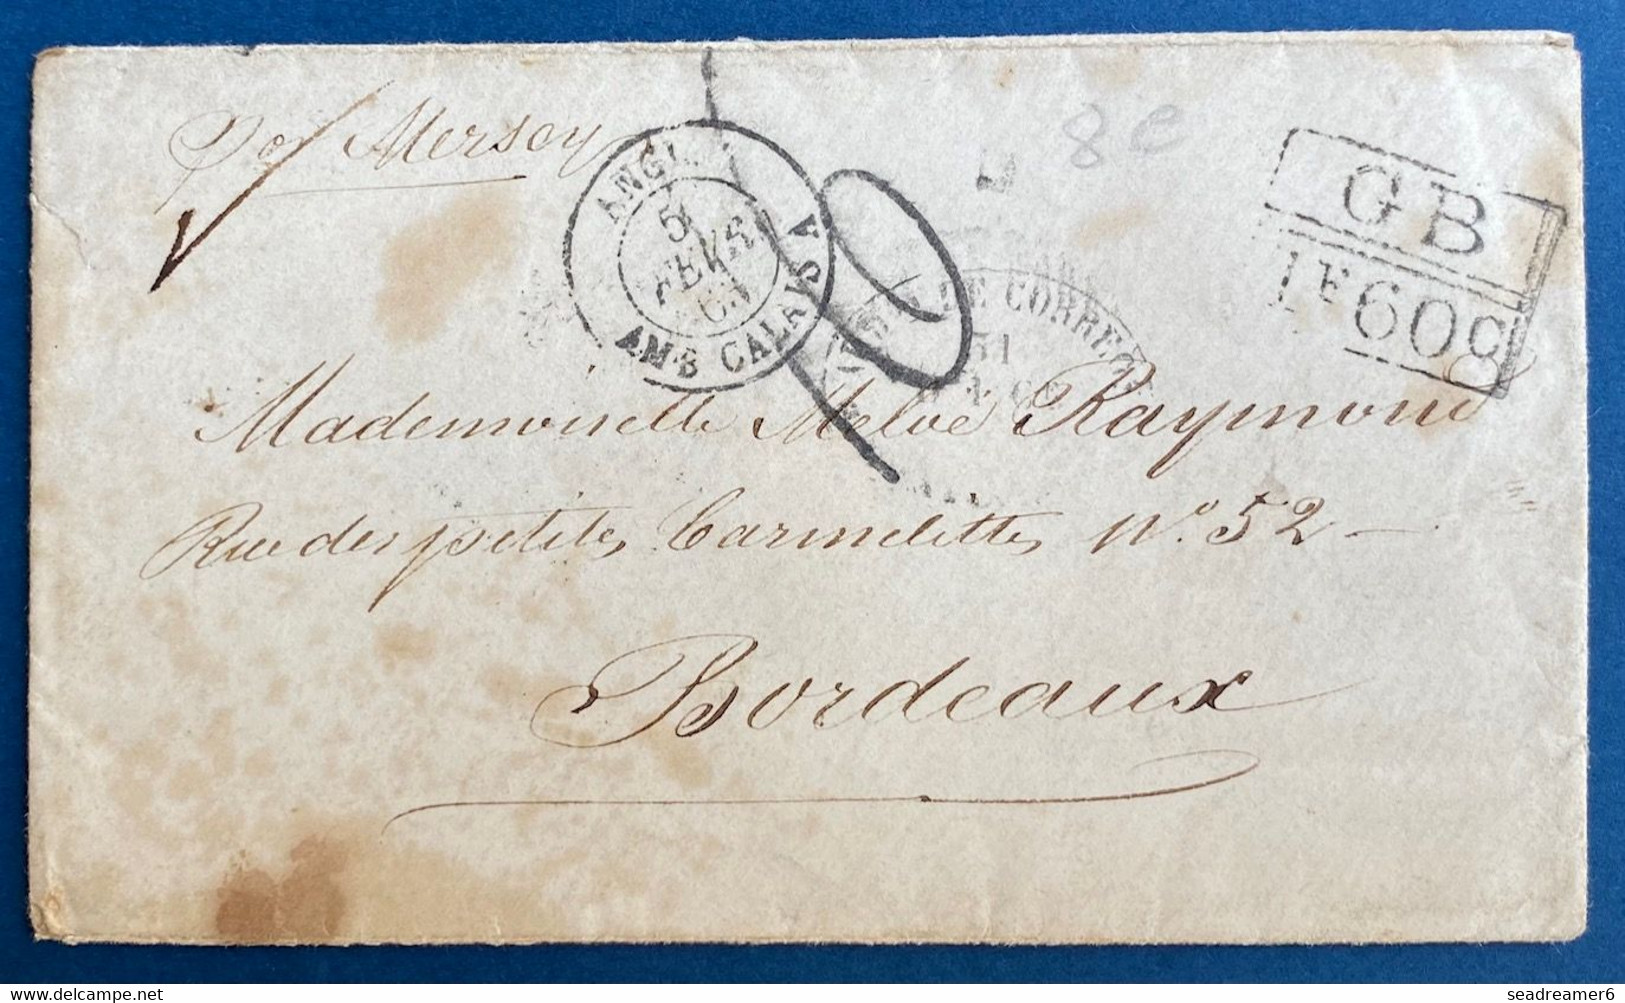 Por Mersey
ANGL.
5
FEVR
AMB CALAIS A
10
8 e
GB
1F60c
DE CORRE
31
Mademoiselle Melvé Raymond
Rue des petites Carmelittes N° 52 -
Bordeaux
www.delcampe.net
seadreamer6